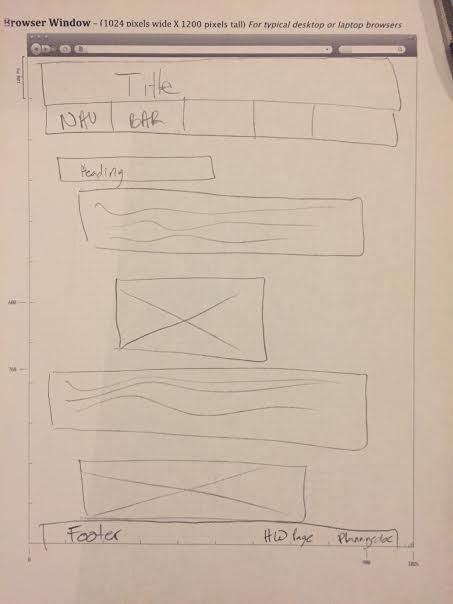 Browser Window – (1024 pixels wide X 1200 pixels tall) For typical desktop or laptop browsers
Title
NAV BAR
Heading
600
700
Footer HW Page
0